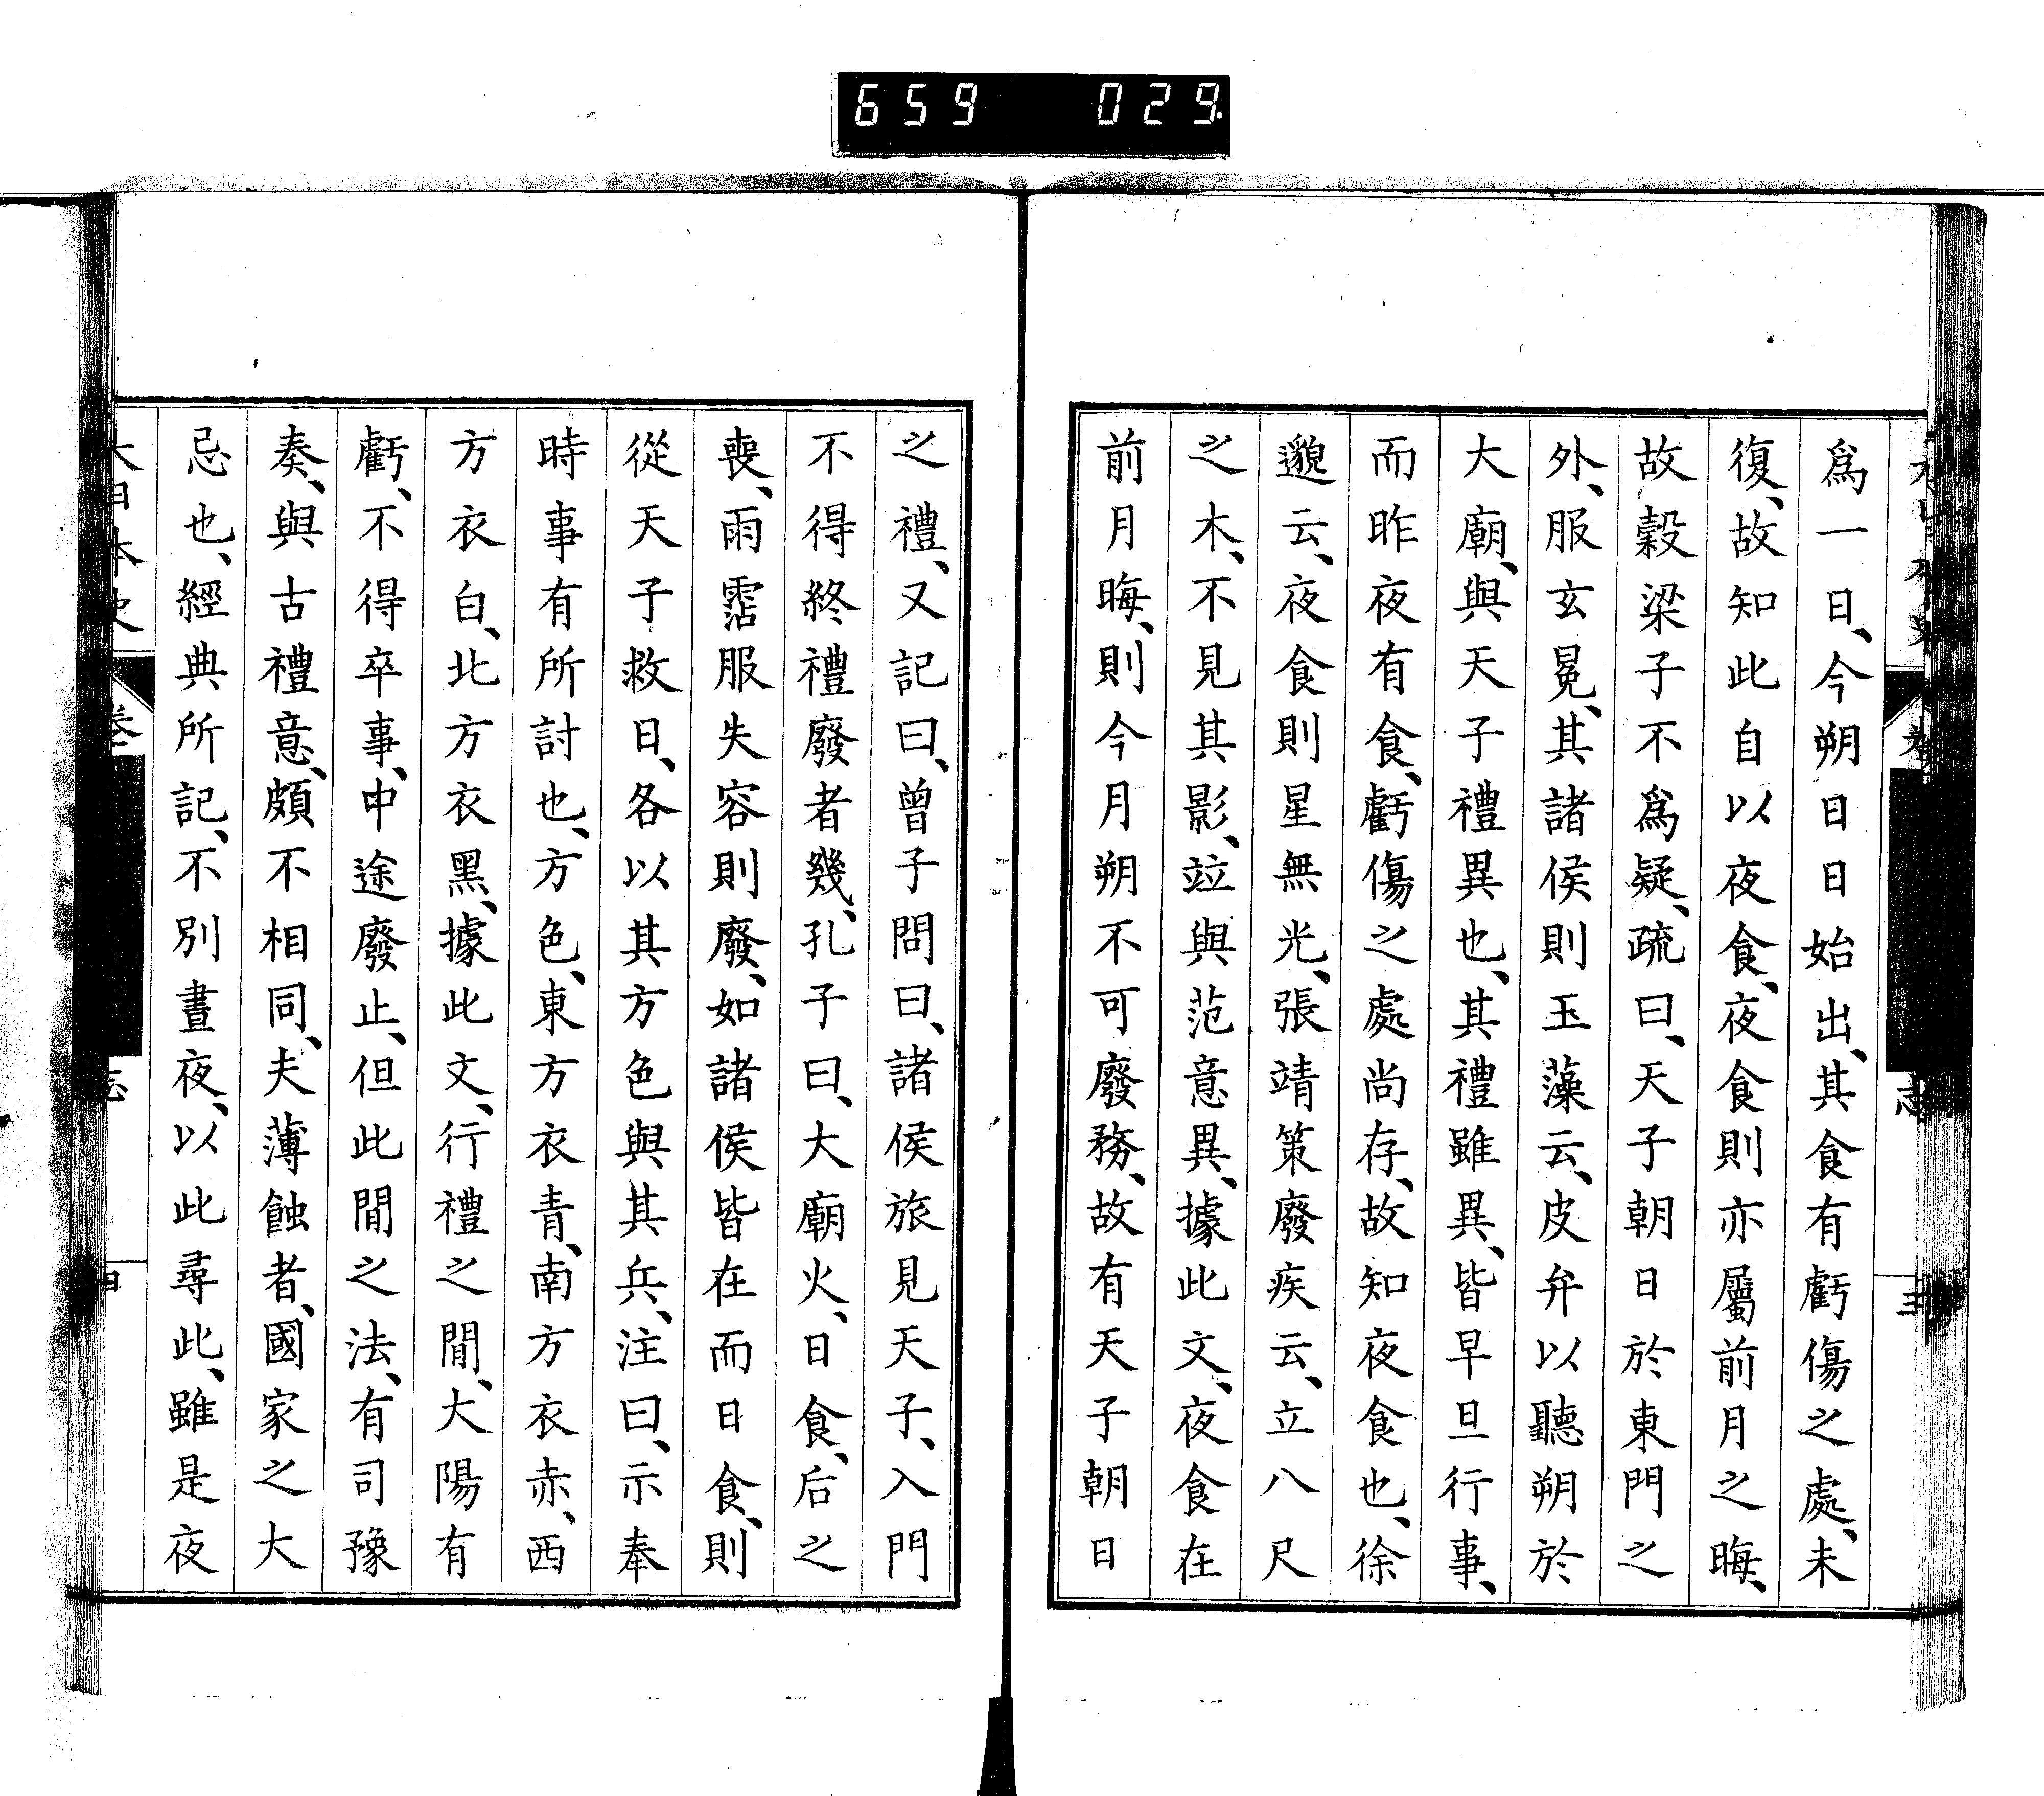 659 029
爲一日、今朔日日始出、其食有虧傷之處、未
復、故知此自以夜食、夜食則亦屬前月之晦、
故穀梁子不爲疑、疏曰、天子朝日於東門之
外、服玄冕、其諸侯則玉藻云、皮弁以聽朔於
大廟、與天子禮異也、其禮雖異、皆早旦行事、
而昨夜有食、虧傷之處尚存、故知夜食也、徐
邈云、夜食則星無光、張靖策廢疾云、立八尺
之木、不見其影、竝與范意異、據此文、夜食在
前月晦、則今月朔不可廢務、故有天子朝日
之禮、又記曰、曾子問曰、諸侯旅見天子、入門
不得終禮廢者幾、孔子曰、大廟火、日食、后之
喪、雨霑服失容則廢、如諸侯皆在而日食、則
從天子救日、各以其方色與其兵、注曰、示奉
時事有所討也、方色、東方衣青、南方衣赤、西
方衣白、北方衣黑、據此文、行禮之間、大陽有
虧、不得卒事、中途廢止、但此間之法、有司豫
奏、與古禮意、頗不相同、夫薄蝕者、國家之大
忌也、經典所記、不別晝夜、以此尋此、雖是夜
大日本史 卷 志